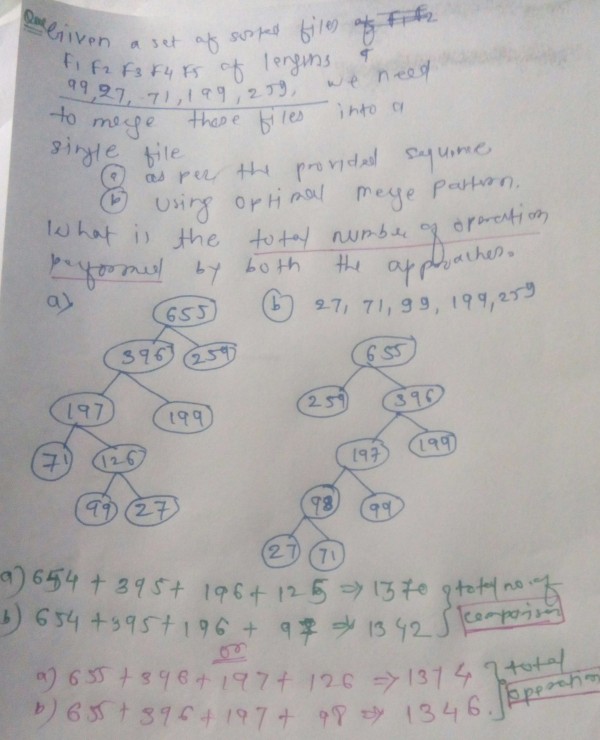 Que Given a set of sorted files of F1 F2
F1 F2 F3 F4 F5 of lengths
99, 27, 71, 199, 259, we need
to merge these files into a
single file
(a) as per the provided squnce
(b) using optimal merge pattern.
What is the total number of operation
performed by both the approaches.
a) (b) 27, 71, 99, 199, 259
655
396 259
197 199
71 126
99 27
655
259 396
197 199
98 99
27 71
a) 654 + 395 + 196 + 125 => 1370 } total no. of
b) 654 + 395 + 196 + 97 => 1342 } comparison
or
a) 655 + 396 + 197 + 126 => 1374 } total
b) 655 + 396 + 197 + 98 => 1346. } operation